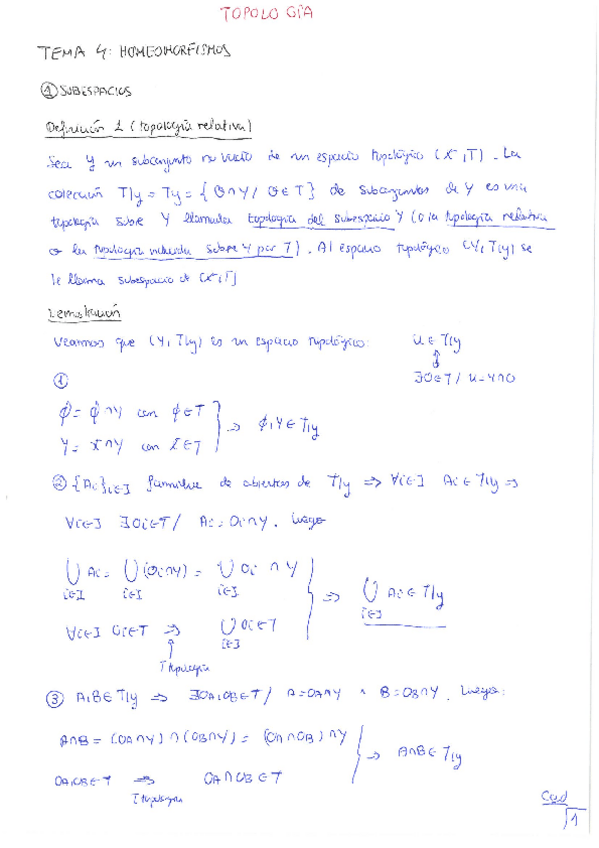 TOPOLOGÍA
TEMA 4: HOMEOMORFISMOS
① SUBESPACIOS
Definición 1 (topología relativa)
Sea Y un subconjunto no vacío de un espacio topológico (X,T). La
colección T|y = Ty = {O∩Y / O∈T} de subconjuntos de Y es una
topología sobre Y llamada topología del subespacio Y (o la topología relativa
o la topología inducida sobre Y por T). Al espacio topológico (Y, T|y) se
le llama subespacio de (X,T)
Demostración
Veamos que (Y, T|y) es un espacio topológico: U ∈ T|y
⇕
∃O∈T / U=Y∩O
①
∅ = ∅∩Y con ∅∈T
Y = X∩Y con X∈T } → ∅,Y ∈ T|y
② {Ai}i∈I familia de abiertos de T|y ⇒ ∀i∈I Ai∈T|y ⇒
∀i∈I ∃Oi∈T / Ai=Oi∩Y. Luego
⋃i∈I Ai = ⋃i∈I (Oi∩Y) = ⋃i∈I Oi ∩ Y
∀i∈I Oi∈T ⇒ ⋃i∈I Oi∈T } ⇒ ⋃i∈I Ai ∈ T|y
↑
T topología
③ A,B∈T|y ⇒ ∃OA,OB∈T / A=OA∩Y ∧ B=OB∩Y. Luego:
A∩B = (OA∩Y)∩(OB∩Y) = (OA∩OB)∩Y
OA,OB∈T ⇒ OA∩OB∈T } → A∩B∈T|y
T topología
cqd
1